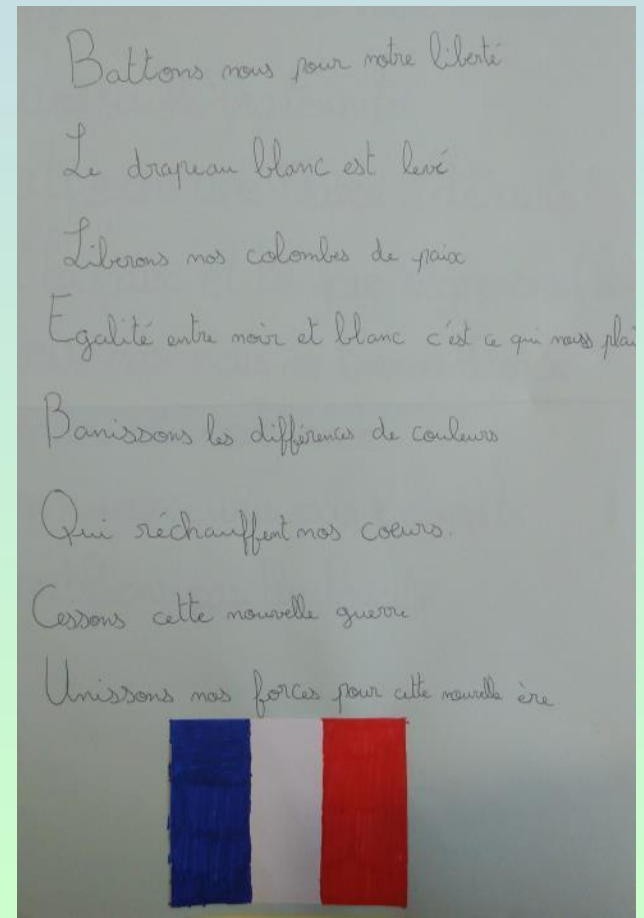 Battons nous pour notre liberté
Le drapeau blanc est levé
Liberons nos colombes de paix
Egalité entre noir et blanc c'est ce qui nous plai
Banissons les différences de couleurs
Qui réchauffent nos coeurs.
Cessons cette nouvelle guerre
Unissons nos forces pour cette nouvelle ère